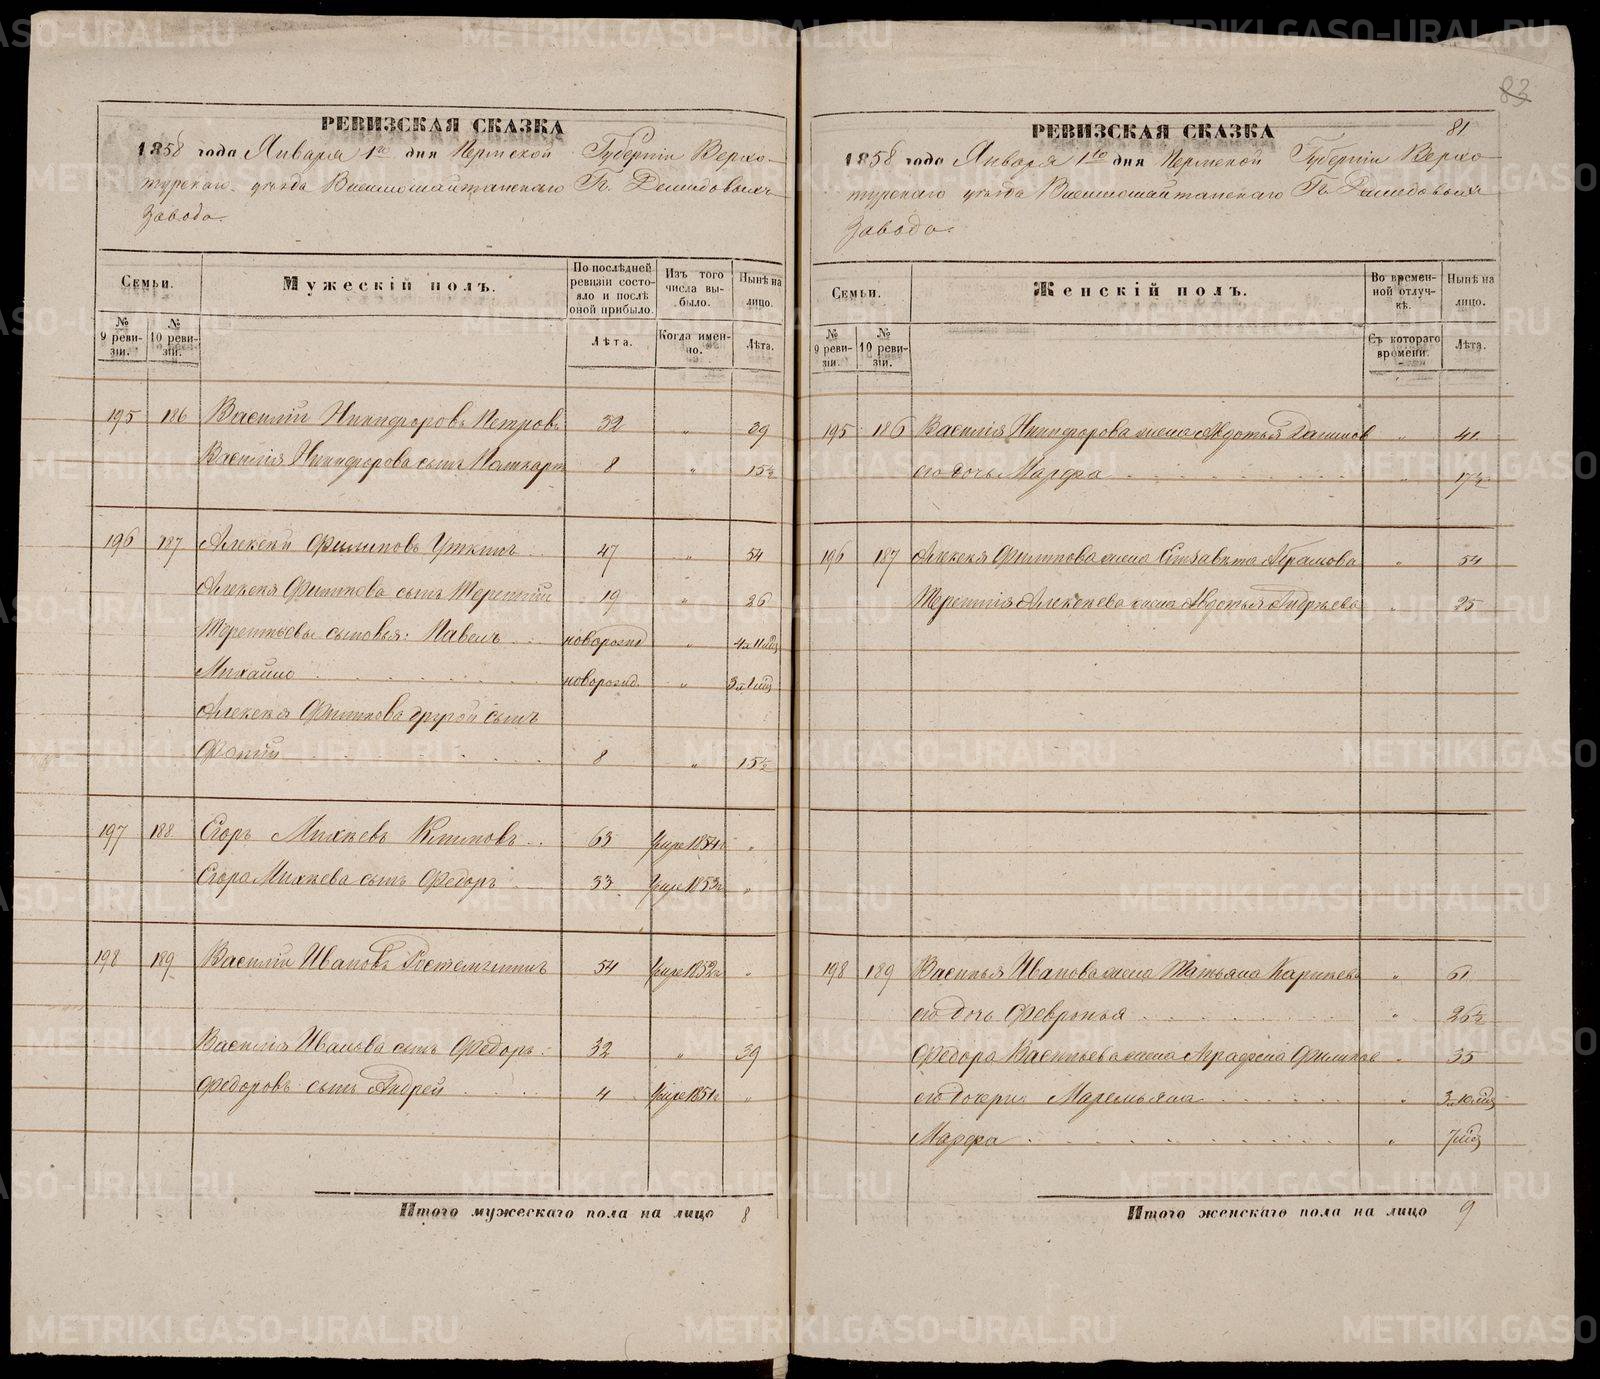 83
РЕВИЗСКАЯ СКАЗКА
1858 года Января 1го дня Пермской Губернiи Верхо-
турскаго уѣзда Висимошайтанскаго Гг. Демидовыхъ
Завода.
Семьи.
№ 9 ревизiи.
№ 10 ревизiи.
Мужескiй полъ.
По послѣдней ревизiи состояло и послѣ оной прибыло.
Лѣта.
Изъ того числа выбыло.
Когда именно.
Нынѣ на лицо.
Лѣта.
195 186 Василiй Никифоровъ Петровъ 32 „ 39
Василiя Никифорова сынъ 8 „ 15½
196 187 Алексѣй Филиповъ Уткинъ 47 „ 54
Алексѣя Филипова сынъ Терентiй 19 „ 26
Терентьевы сыновья: Павелъ новорожд „ 4л 11 мѣц
Михайло новорожд. „ 3л 1 мѣц
Алексѣя Филипова другой сынъ
8 „ 15½
197 188 Егоръ Михѣевъ Климовъ 63 умре 1854г „
Егора Михѣева сынъ Федоръ 33 умре 1853г „
198 189 Василiй Ивановъ 54 умре 1852г „
Василiя Иванова сынъ Федоръ 32 „ 39
Федоровъ сынъ Андрей 4 умре 1851г „
Итого мужескаго пола на лицо 8
РЕВИЗСКАЯ СКАЗКА 81
1858 года Января 1го дня Пермской Губернiи Верхо-
турскаго уѣзда Висимошайтанскаго Гг. Демидовыхъ
Завода.
Семьи.
№ 9 ревизiи.
№ 10 ревизiи.
Женскiй полъ.
Во временной отлучкѣ.
Съ котораго времени.
Нынѣ на лицо.
Лѣта.
195 186 Василiя Никифорова жена Авдотья Данилов „ 41
его дочь Марфа „ 17½
196 187 Алексѣя Филипова жена Елизавета Абрамова „ 54
Терентiя Алексѣева жена Авдотья Андрѣева „ 25
198 189 Василья Иванова жена Татьяна „ 61
его дочь Февронья „ 26½
Федора Васильева жена Аграфена Филипов „ 35
его дочери: Маремьяна „ 3л 10 мѣц
Марфа „ 7 мѣц
Итого женскаго пола на лицо 9
METRIKI.GASO-URAL.RU